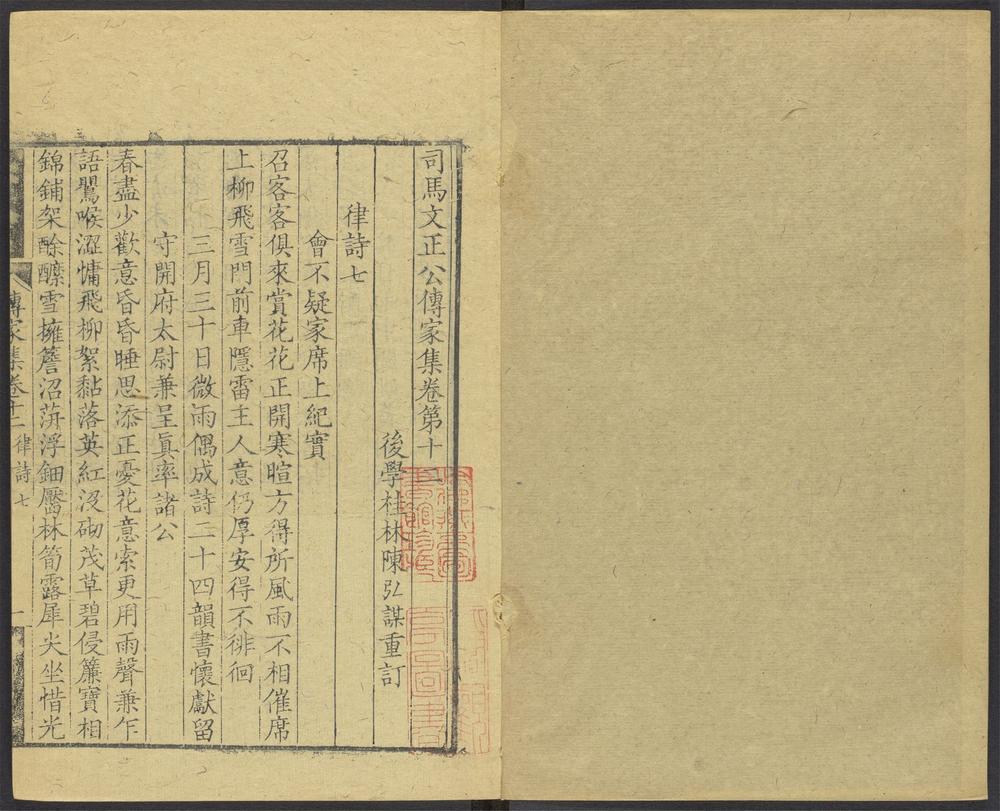 司馬文正公傳家集卷第十二
後學桂林陳弘謀重訂
律詩七
會不疑家席上紀實
召客客俱來賞花花正開寒暄方得所風雨不相催席
上柳飛雪門前車隱雷主人意仍厚安得不徘徊
三月三十日微雨偶成詩二十四韻書懷獻留
守開府太尉兼呈眞率諸公
春盡少歡意昏昏睡思添正憂花意索更用雨聲兼乍
語鸎喉澀慵飛柳絮黏落英紅沒砌茂草碧侵簾寶相
錦鋪架酴醾雪擁簷沼萍浮鈿靨林筍露犀尖坐惜光
傳家集卷十二 律詩七 一